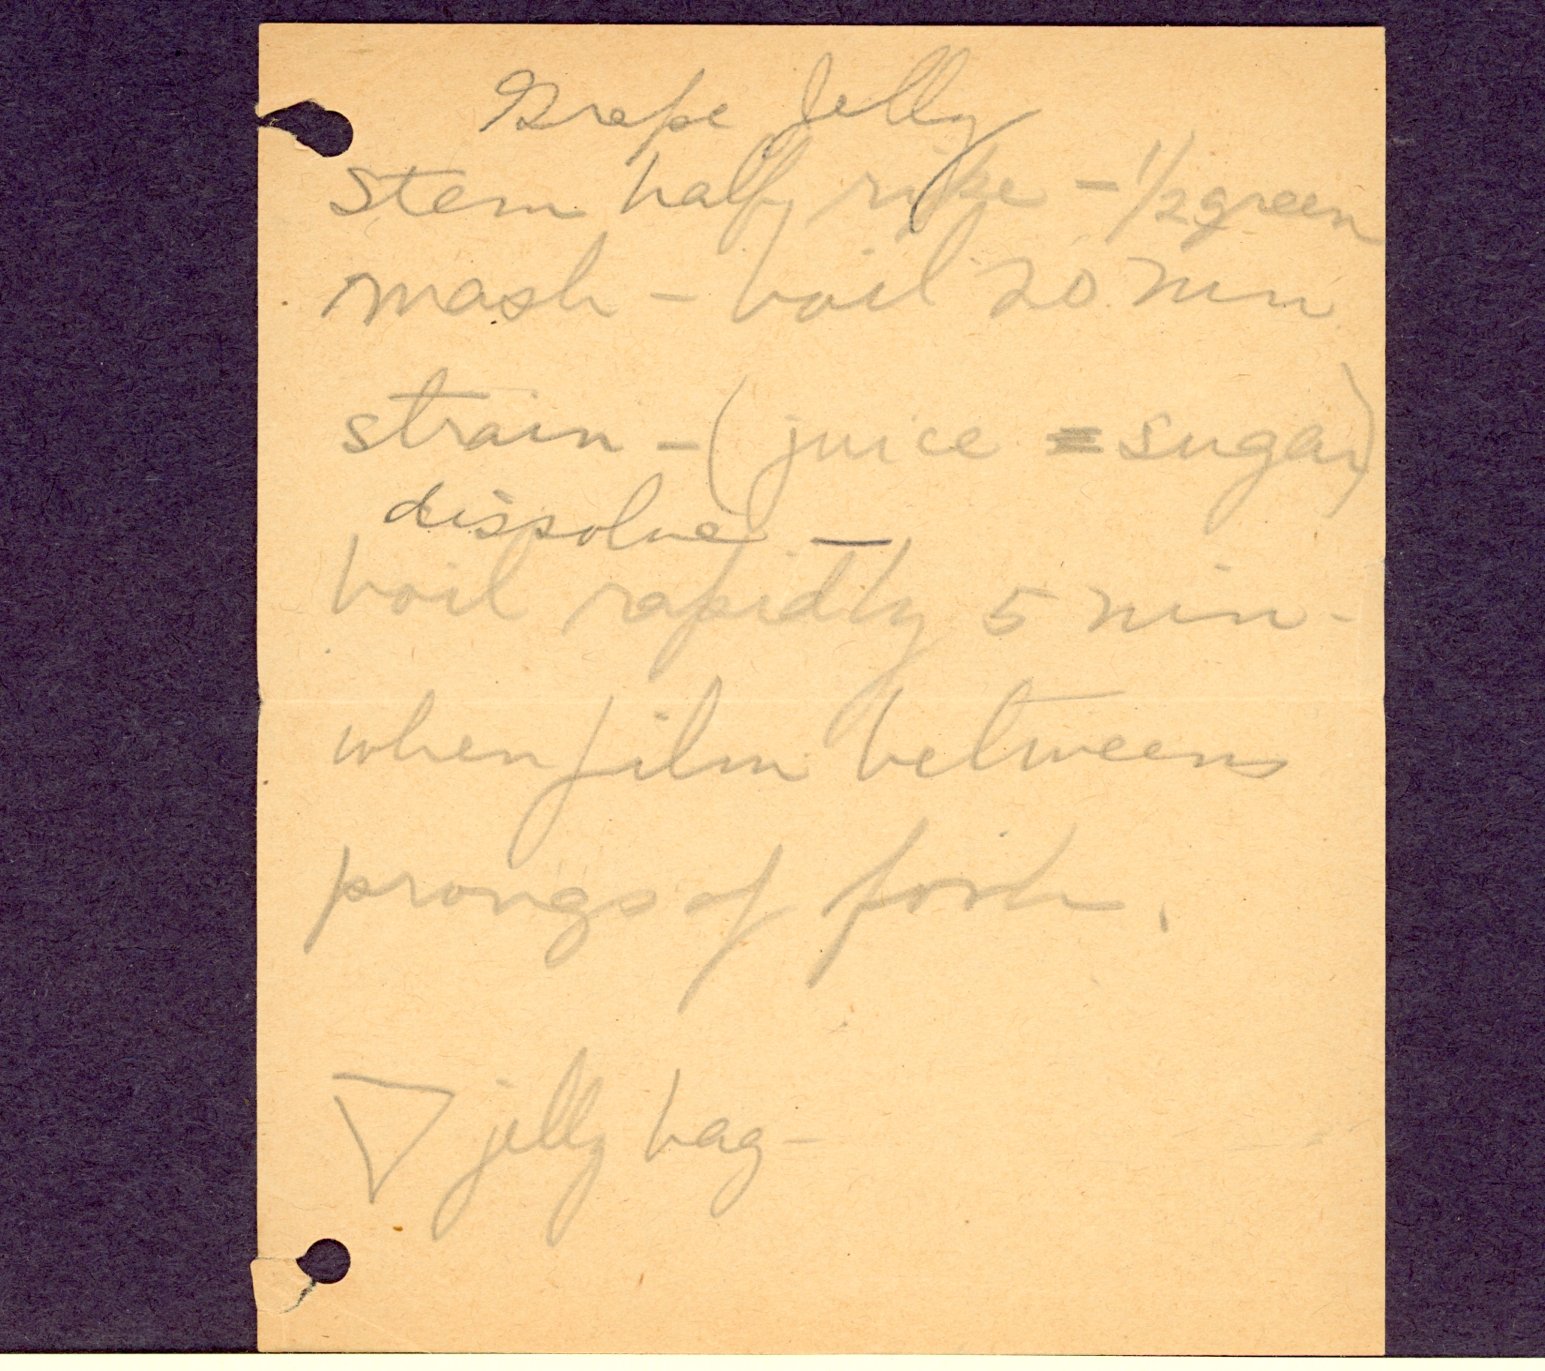 Grape Jelly
Stem half ripe - 1/2 green
mash - boil 20 min
strain - (juice = sugar)
dissolve -
boil rapidly 5 min -
when film between
prongs of fork.
jelly bag -